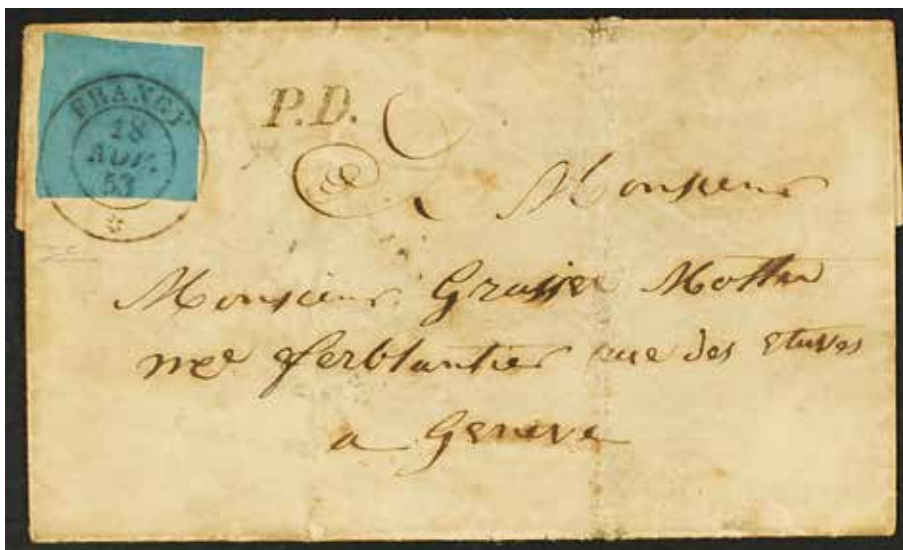 FRANGY
18
NOV.
53
P.D.
A Monsieur
Monsieur Grasset
md ferblantier rue des etuves
a Geneve